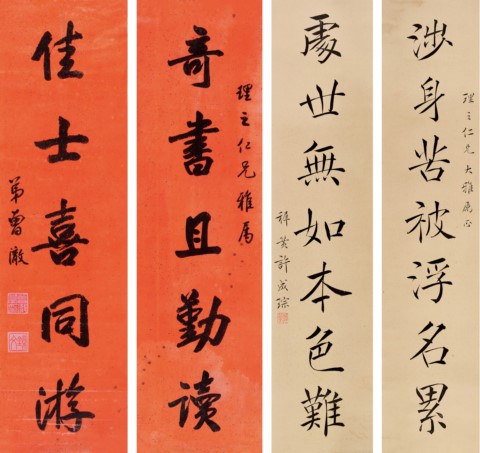 理之仁兄大雅属正
涉身苦被浮名累
處世無如本色難
穉黄許成琮
理之仁兄雅属
奇書且勤讀
佳士喜同游
弟曹澂